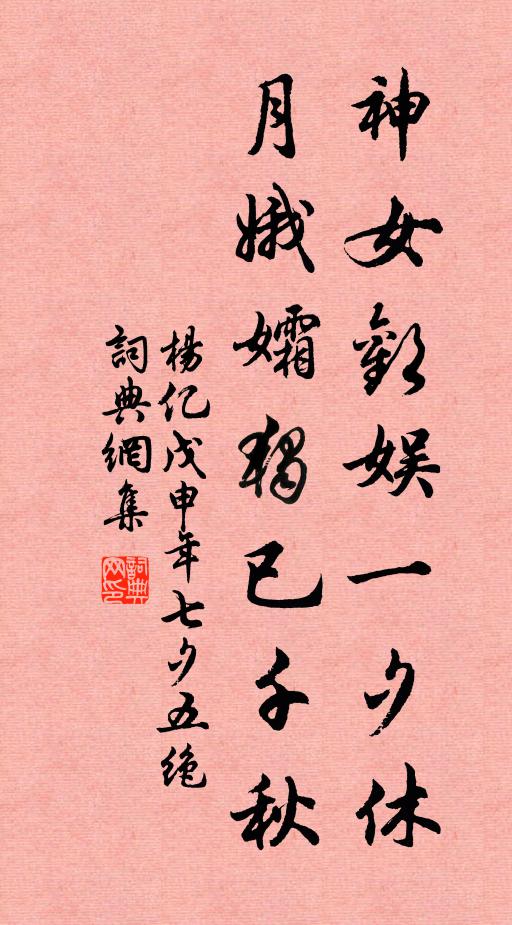 神女歡娛一夕休
月娥孀獨已千秋
楊億戊申年七夕五绝
詞典網集
詞典网印